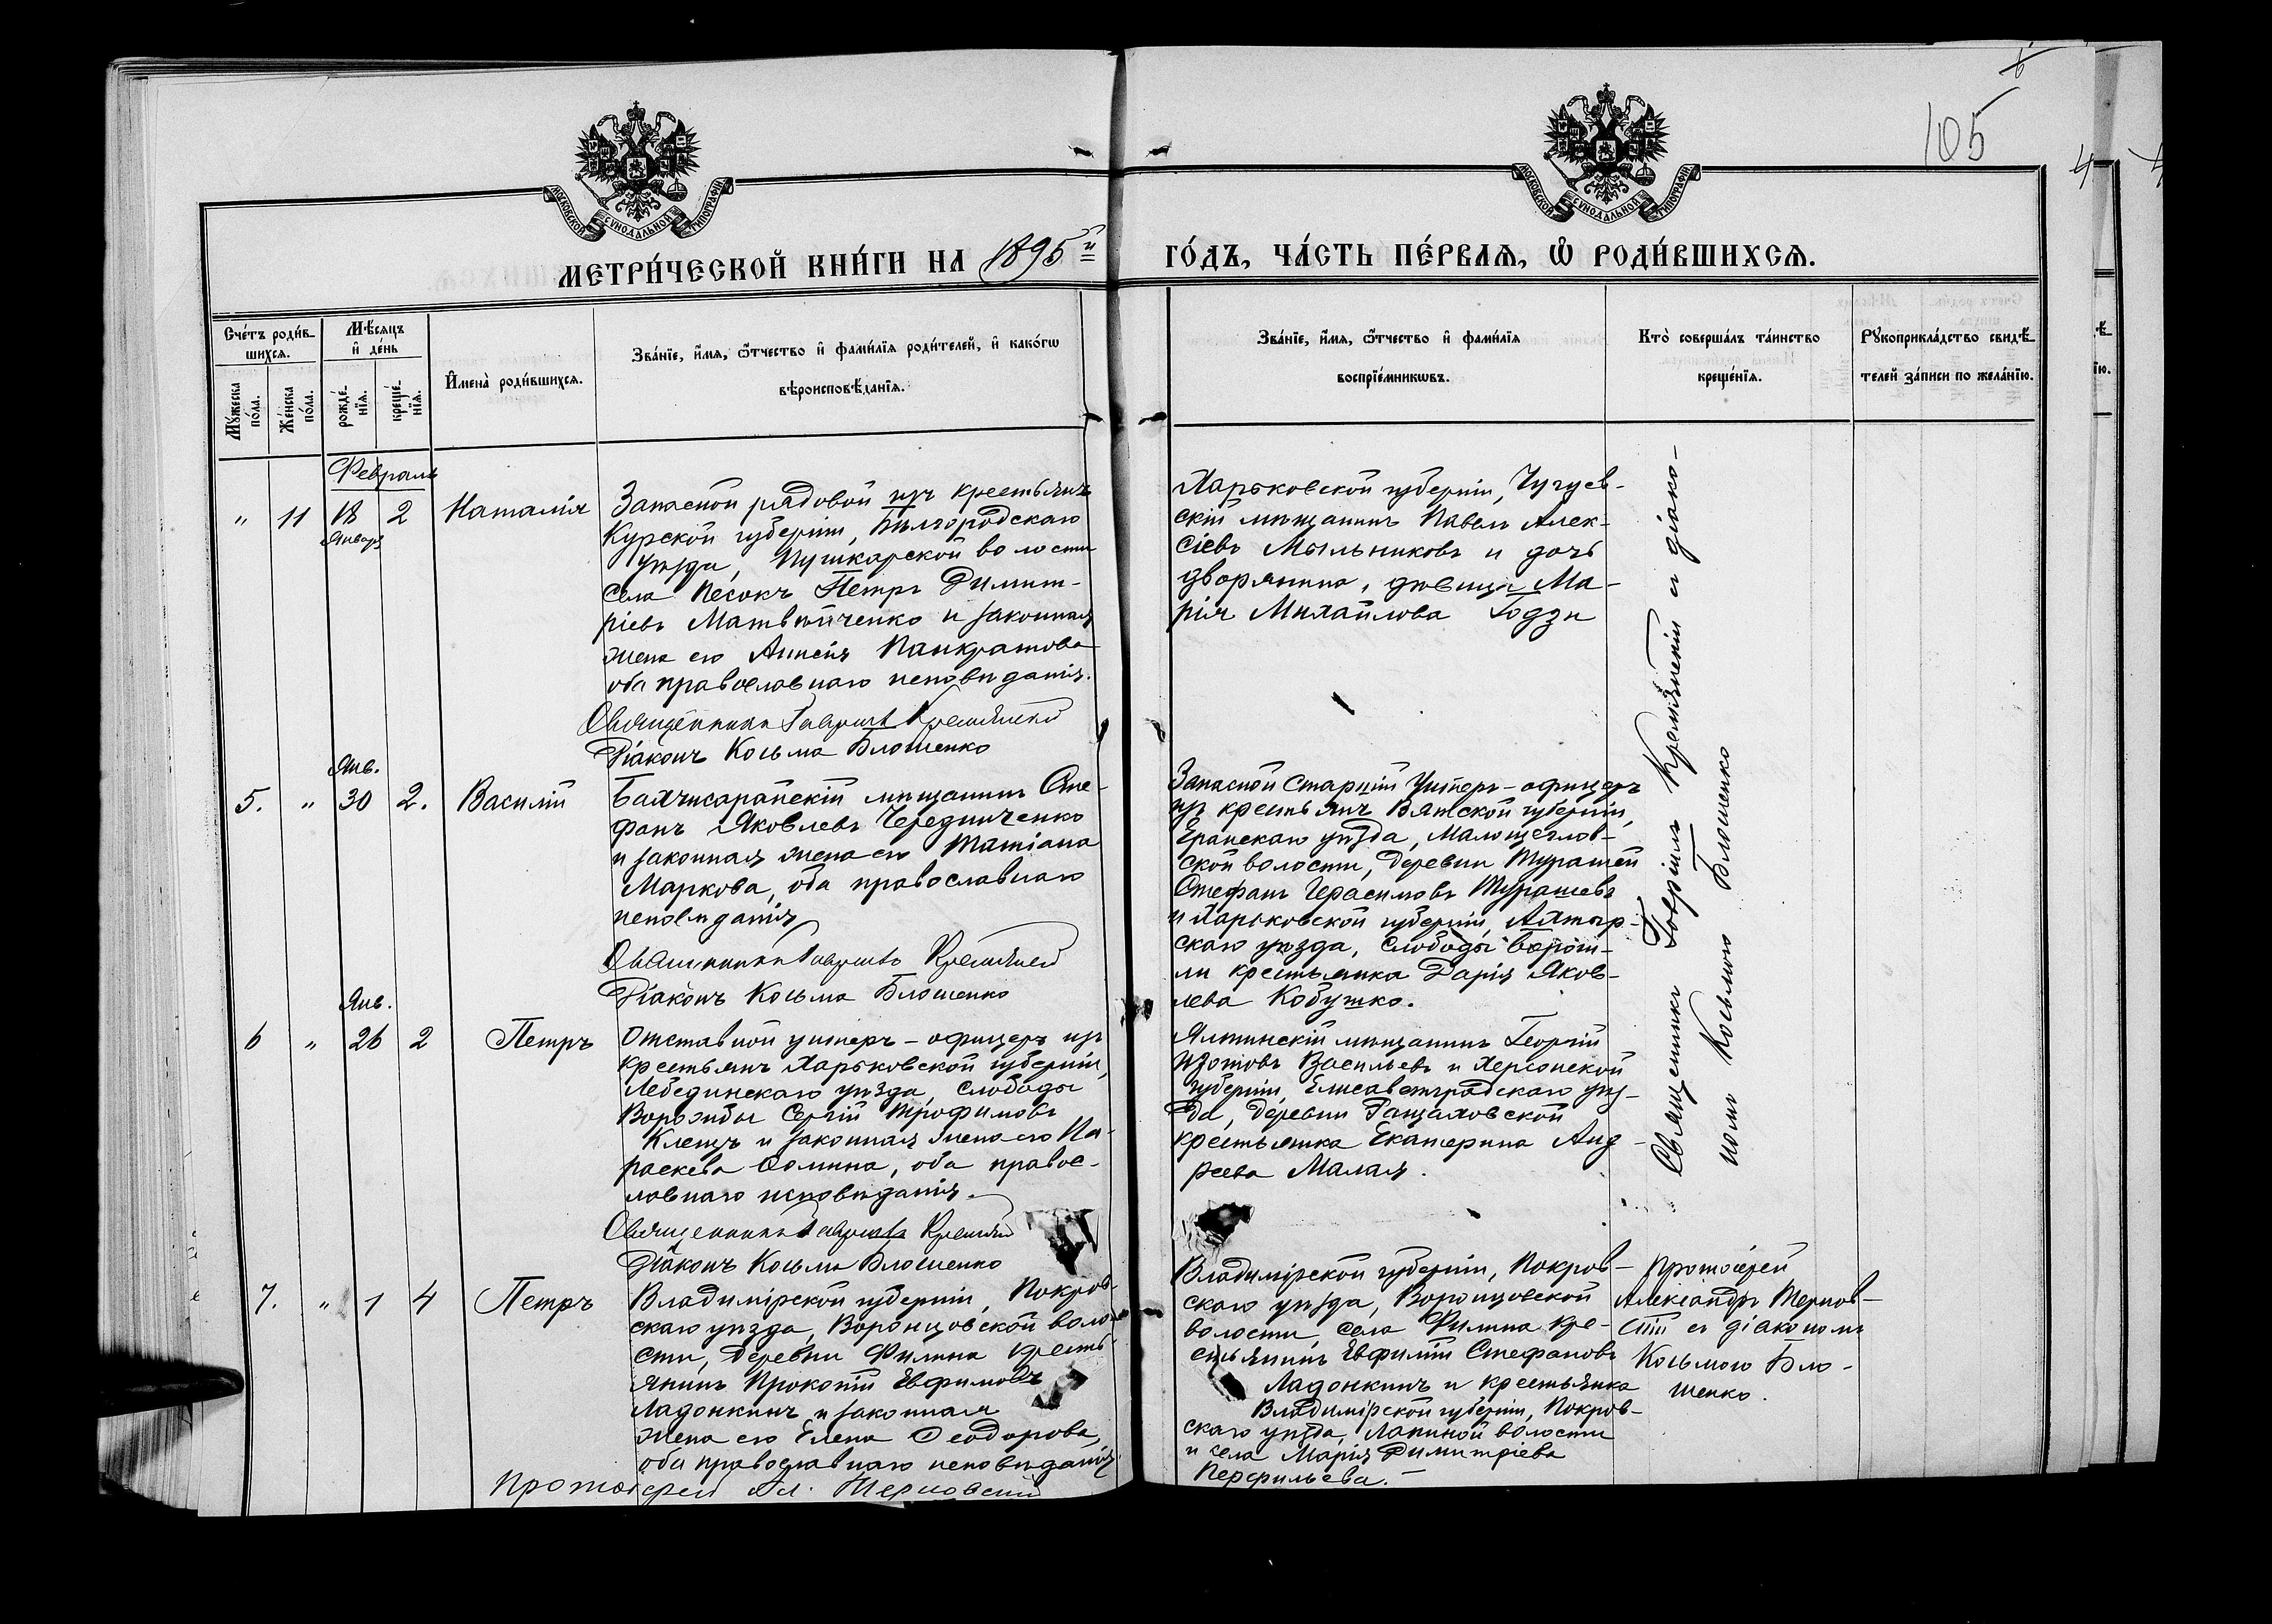 105
4
МОСКОВСКОЙ СѴНОДАЛЬНОЙ ТИПОГРАФІИ
МОСКОВСКОЙ СѴНОДАЛЬНОЙ ТИПОГРАФІИ
МЕТРИ́ЧЕСКОЙ КНИ́ГИ НА 1895й
ГО́ДЪ, ЧА́СТЬ ПЕ́РВАѦ, Ѽ РОДИ́ВШИХСѦ.
Сче́тъ роди́в-
шихсѧ.
Мꙋ́жеска
по́ла.
Же́нска
по́ла.
Мѣ́сяцъ
и҆ де́нь
рожде́-
нїѧ.
креще́-
нїѧ.
И҆мена̀ роди́вшихсѧ.
Зва́нїе, и҆́мѧ, ѻ҆́тчество и҆ фами́лїѧ роди́телей, и҆ како́гѡ
вѣроисповѣ́данїѧ.
Зва́нїе, и҆́мѧ, ѻ҆́тчество и҆ фами́лїѧ
воспрїе́мникѡвъ.
Кто̀ соверша́лъ та́инство
креще́нїѧ.
Рꙋкоприкла́дство свидѣ́-
телей за́писи по жела́нїю.
Февраль
" 11 18 2
Января
Наталія
Запасной рядовой изъ крестьянъ
Курской губерніи, Бѣлгородскаго
уѣзда, Пушкарской волости
села Песокъ Петръ Димит-
ріевъ Матвѣйченко и законная
жена его Анисія Панкратова
оба православнаго исповѣданія.
Священникъ Гавріилъ
Діаконъ Косьма Блошенко
Харьковской губерніи, Чугуев-
скій мѣщанинъ Павелъ Алек-
сіевъ Мыльниковъ и дочь
дворянина, дѣвица Ма-
рія Михайлова Годзи
Священникъ Гавріилъ и діако-
номъ Косьмою Блошенко
Янв.
5. " 30 2. Василій
Бахчисарайскій мѣщанинъ Сте-
фанъ Яковлевъ Чередниченко
и законная жена его Татіана
Маркова, оба православнаго
исповѣданія
Священникъ Гавріилъ
Діаконъ Косьма Блошенко
Запасной старшій Унтеръ-офицеръ
изъ крестьянъ Вятской губерніи,
Еранскаго уѣзда, Малощеглов-
ской волости, деревни Турашей
Стефанъ Герасимовъ Турашевъ
и Харьковской губерніи, Ахтыр-
скаго уѣзда, слободы Бором-
ли крестьянка Дарія Яков-
лева Кобушко.
Янв.
6 " 26 2 Петръ
Отставной унтеръ-офицеръ изъ
крестьянъ Харьковской губерніи,
Лебединскаго уѣзда, слободы
Ворожбы Сергій Трофимовъ
Клещъ и законная жена его Па-
раскева Фомина, оба правос-
лавнаго исповѣданія.
Священникъ Гавріилъ
Діаконъ Косьма Блошенко
Ялтинскій мѣщанинъ Георгій
Изотовъ Васильевъ и Херсонской
губерніи, Елисаветградскаго уѣз-
да, деревни
крестьянка Екатерина Анд-
реева Малая.
7. " 1 4 Петръ
Владимірской губерніи, Покров-
скаго уѣзда, Воронцовской воло-
сти, деревни Филина кресть-
янинъ Прокопій Евфимовъ
Ладонкинъ и законная
жена его Елена Ѳеодорова,
оба православнаго исповѣданія.
Протоіерей Ал. Терновскій
Владимірской губерніи, Покров-
скаго уѣзда, Воронцовской
волости, села Филина кре-
стьянинъ Евфимій Стефановъ
Ладонкинъ и крестьянка
Владимірской губерніи, Покров-
скаго уѣзда, Лапиной волости
и села Марія Димитріева
Перфильева.
Протоіерей
Александръ Тернов-
скій съ діакономъ
Косьмою Бло-
шенко.